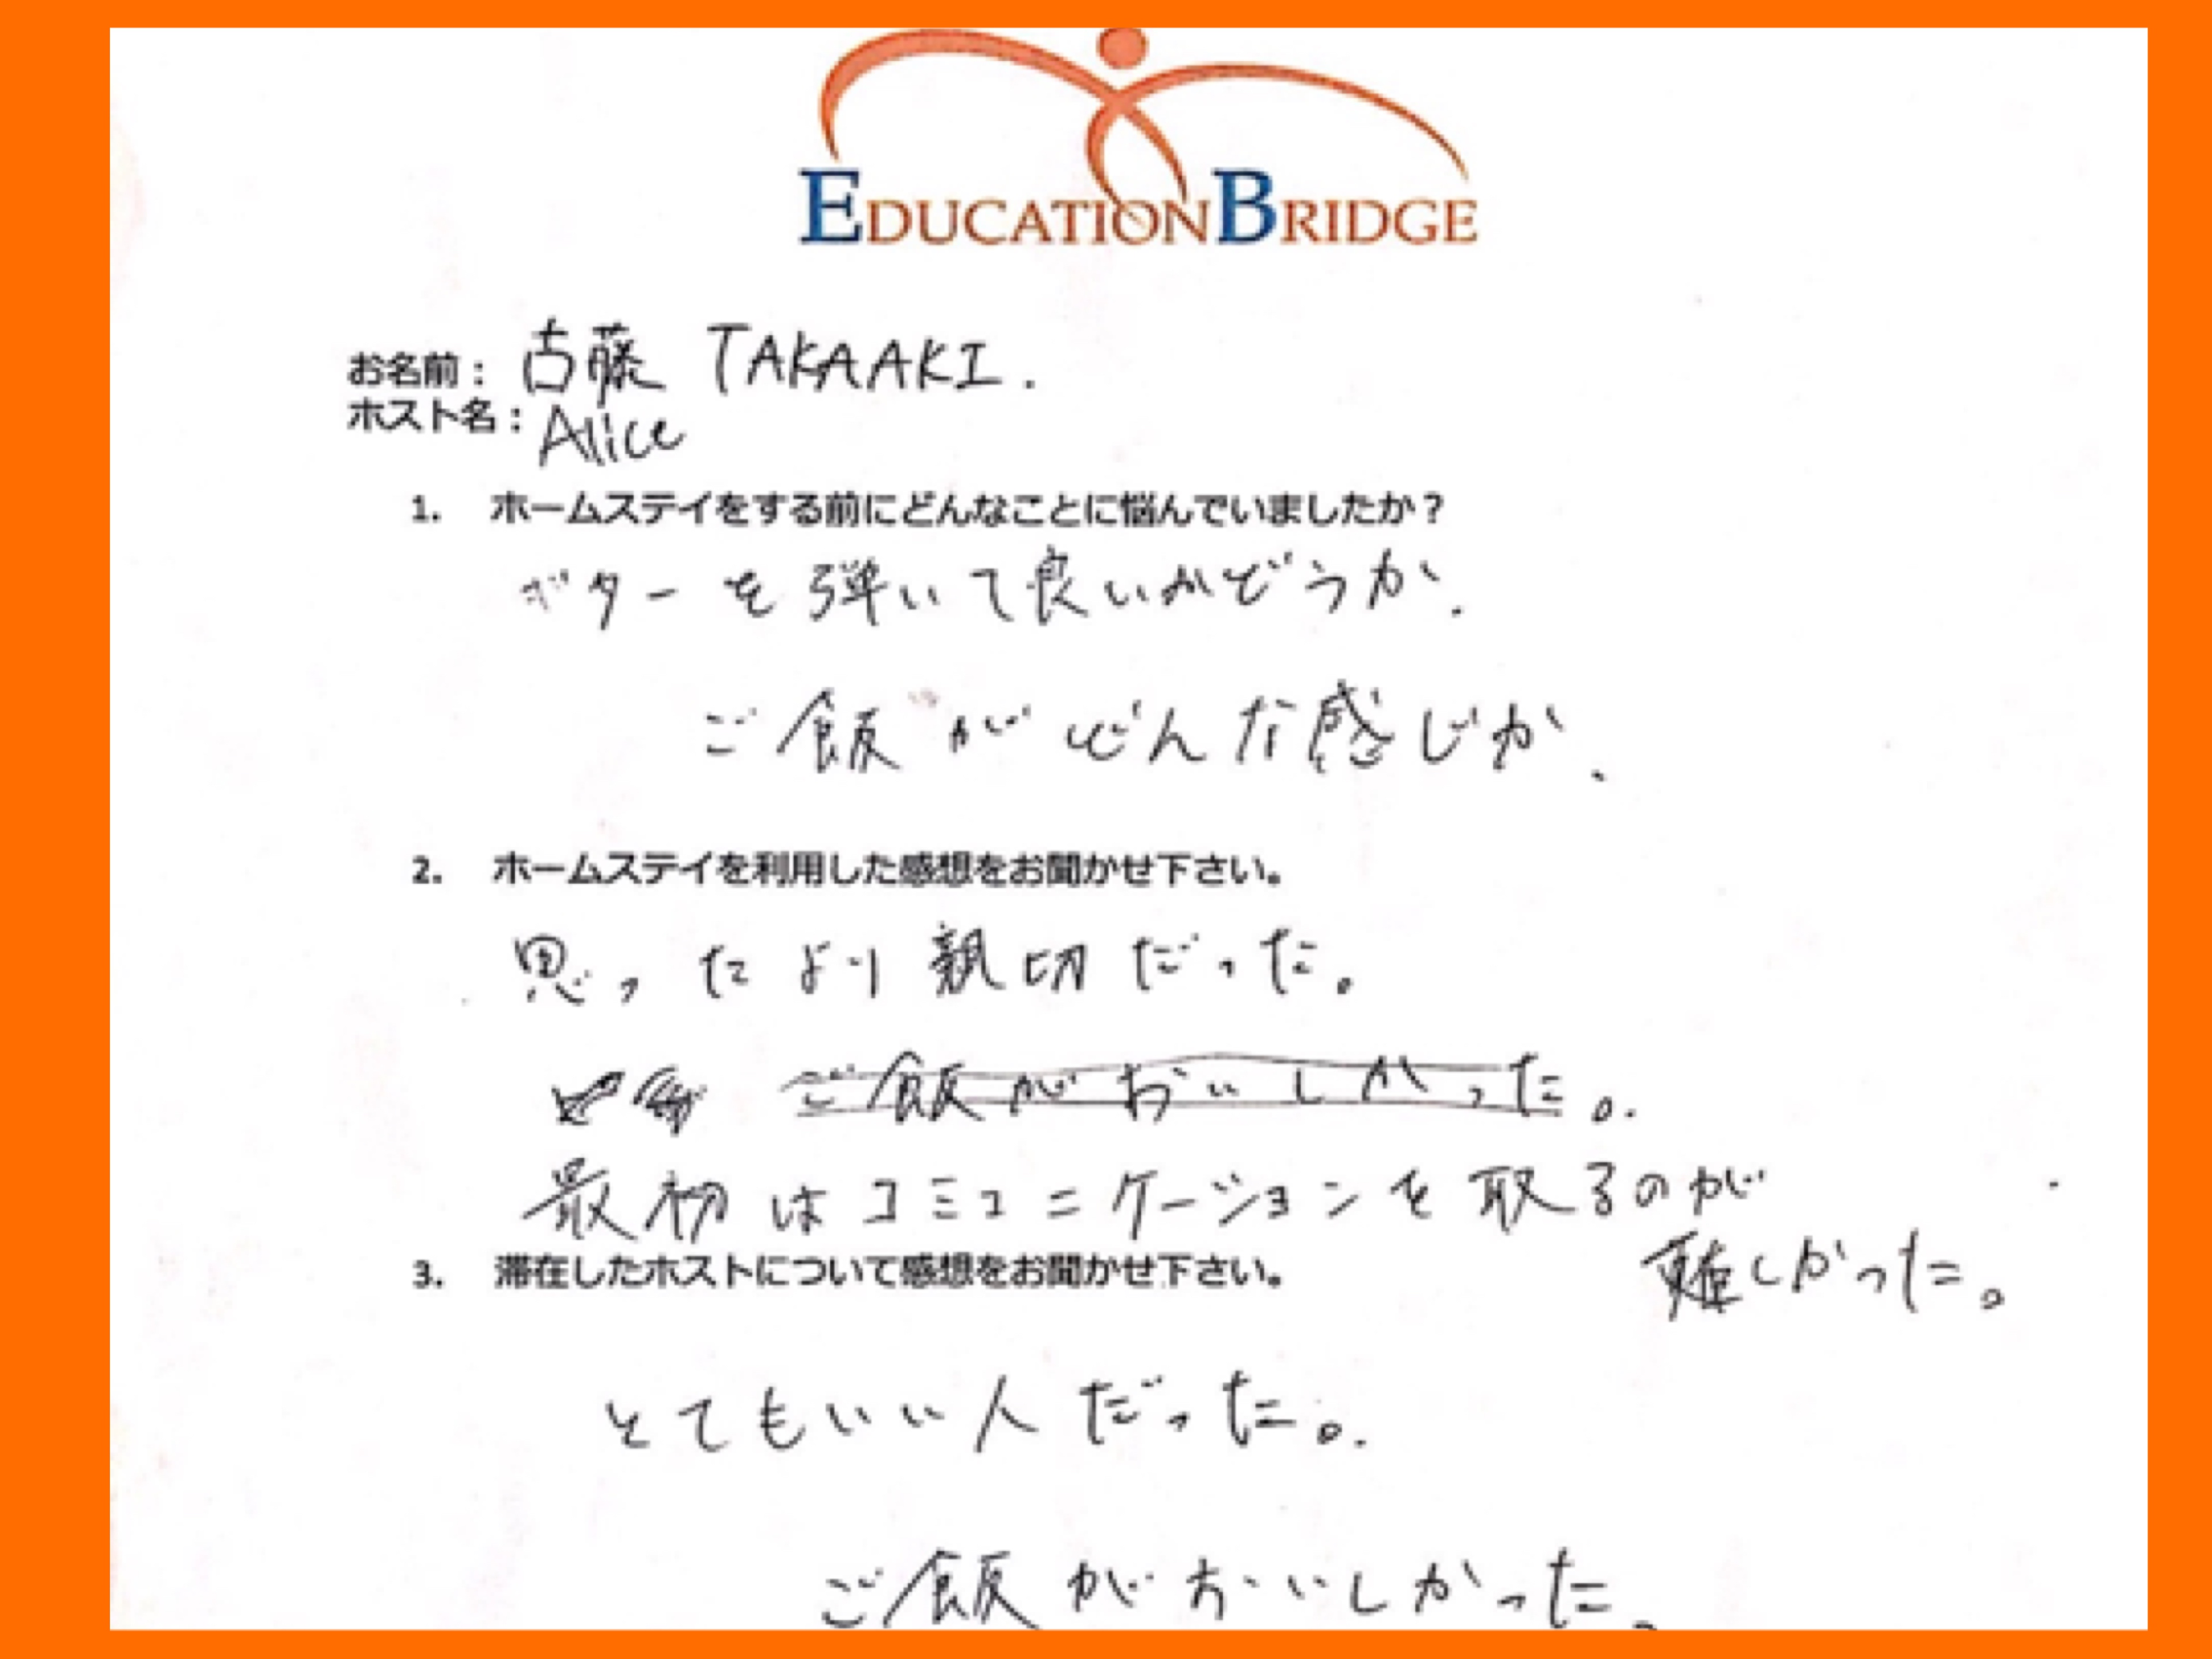 EDUCATIONBRIDGE
お名前: 古藤 TAKAAKI.
ホスト名: Alice
1. ホームステイをする前にどんなことに悩んでいましたか?
ギターを弾いて良いかどうか.
ご飯がどんな感じか.
2. ホームステイを利用した感想をお聞かせ下さい。
思ったより親切だった。
ご飯がおいしかった。
最初はコミュニケーションを取るのが
難しかった。
3. 滞在したホストについて感想をお聞かせ下さい。
とてもいい人だった。
ご飯がおいしかった。